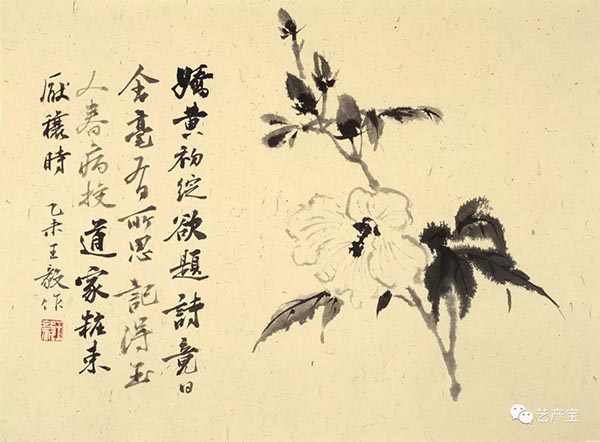 嬌黄初綻欲題詩竟日
含毫有所思記得玉
人春病挍道家粧束
厭禳時
乙未王毅作
艺产宝